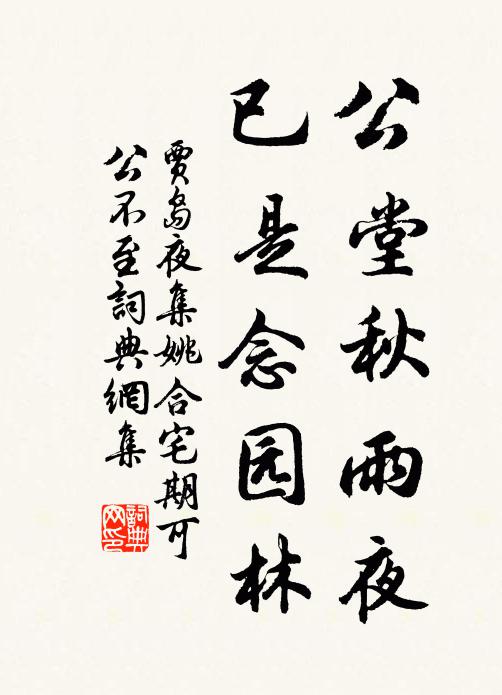 公堂秋雨夜
已是念园林
賈島夜集姚合宅期可
公不至詞典網集
詞典
网印